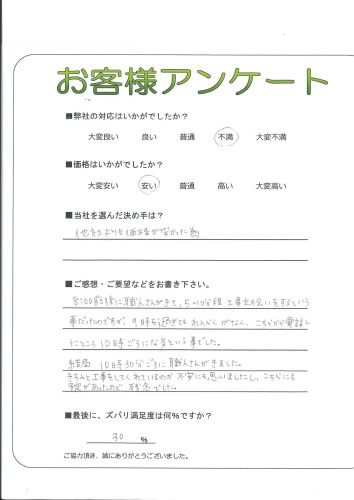 お客様アンケート
■弊社の対応はいかがでしたか?
大変良い 良い 普通 不満 大変不満
■価格はいかがでしたか?
大変安い 安い 普通 高い 大変高い
■当社を選んだ決め手は?
他社よりも価格が安かった為
■ご感想・ご要望などをお書き下さい。
8:00前後に職人さんがきて、5〜10分程工事立ち会いをするという
事だったのですが、9時を過ぎてもれんらくがなく、こちらから電話し
たところ10時ごろになるという事でした。
結局10時30分ごろに職人さんがきました。
きちんと工事をしてくれているのか不安にも思いましたし、こちらにも
予定があったので残念でした。
■最後に、ズバリ満足度は何%ですか?
30 %
ご協力頂き、誠にありがとうございました。